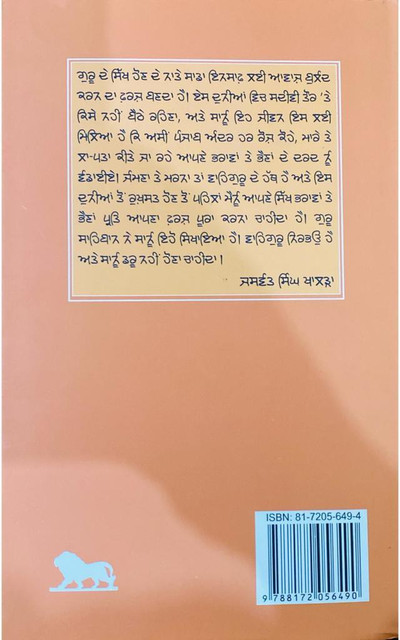 ਗੁਰੂ ਦੇ ਸਿੱਖ ਹੋਣ ਦੇ ਨਾਤੇ ਸਾਡਾ ਇਨਸਾਫ਼ ਲਈ ਆਵਾਜ਼ ਬੁਲੰਦ
ਕਰਨ ਦਾ ਫ਼ਰਜ਼ ਬਣਦਾ ਹੈ। ਏਸ ਦੁਨੀਆਂ ਵਿਚ ਸਦੀਵੀ ਤੌਰ 'ਤੇ
ਕਿਸੇ ਨਹੀਂ ਬੈਠੇ ਰਹਿਣਾ, ਅਤੇ ਸਾਨੂੰ ਇਹ ਜੀਵਨ ਇਸ ਲਈ
ਮਿਲਿਆ ਹੈ ਕਿ ਅਸੀਂ ਪੰਜਾਬ ਅੰਦਰ ਹਰ ਰੋਜ਼ ਕੋਹੇ, ਮਾਰੇ ਤੇ
ਲਾ-ਪਤਾ ਕੀਤੇ ਜਾ ਰਹੇ ਆਪਣੇ ਭਰਾਵਾਂ ਤੇ ਭੈਣਾਂ ਦੇ ਦਰਦ ਨੂੰ
ਵੰਡਾਈਏ। ਜੰਮਣਾ ਤੇ ਮਰਨਾ ਤਾਂ ਵਾਹਿਗੁਰੂ ਦੇ ਹੱਥ ਹੈ ਅਤੇ ਇਸ
ਦੁਨੀਆ ਤੋਂ ਰੁਖ਼ਸਤ ਹੋਣ ਤੋਂ ਪਹਿਲਾਂ ਮੈਨੂੰ ਆਪਣੇ ਸਿੱਖ ਭਰਾਵਾਂ ਤੇ
ਭੈਣਾਂ ਪ੍ਰਤਿ ਆਪਣਾ ਫ਼ਰਜ਼ ਪੂਰਾ ਕਰਨਾ ਚਾਹੀਦਾ ਹੈ। ਗੁਰੂ
ਸਾਹਿਬਾਨ ਨੇ ਸਾਨੂੰ ਇਹੋ ਸਿਖਾਇਆ ਹੈ। ਵਾਹਿਗੁਰੂ ਨਿਰਭਉ ਹੈ
ਅਤੇ ਸਾਨੂੰ ਡਰੂ ਨਹੀਂ ਹੋਣਾ ਚਾਹੀਦਾ।
ਜਸਵੰਤ ਸਿੰਘ ਖਾਲੜਾ
ISBN: 81-7205-649-4
9 788172 056490